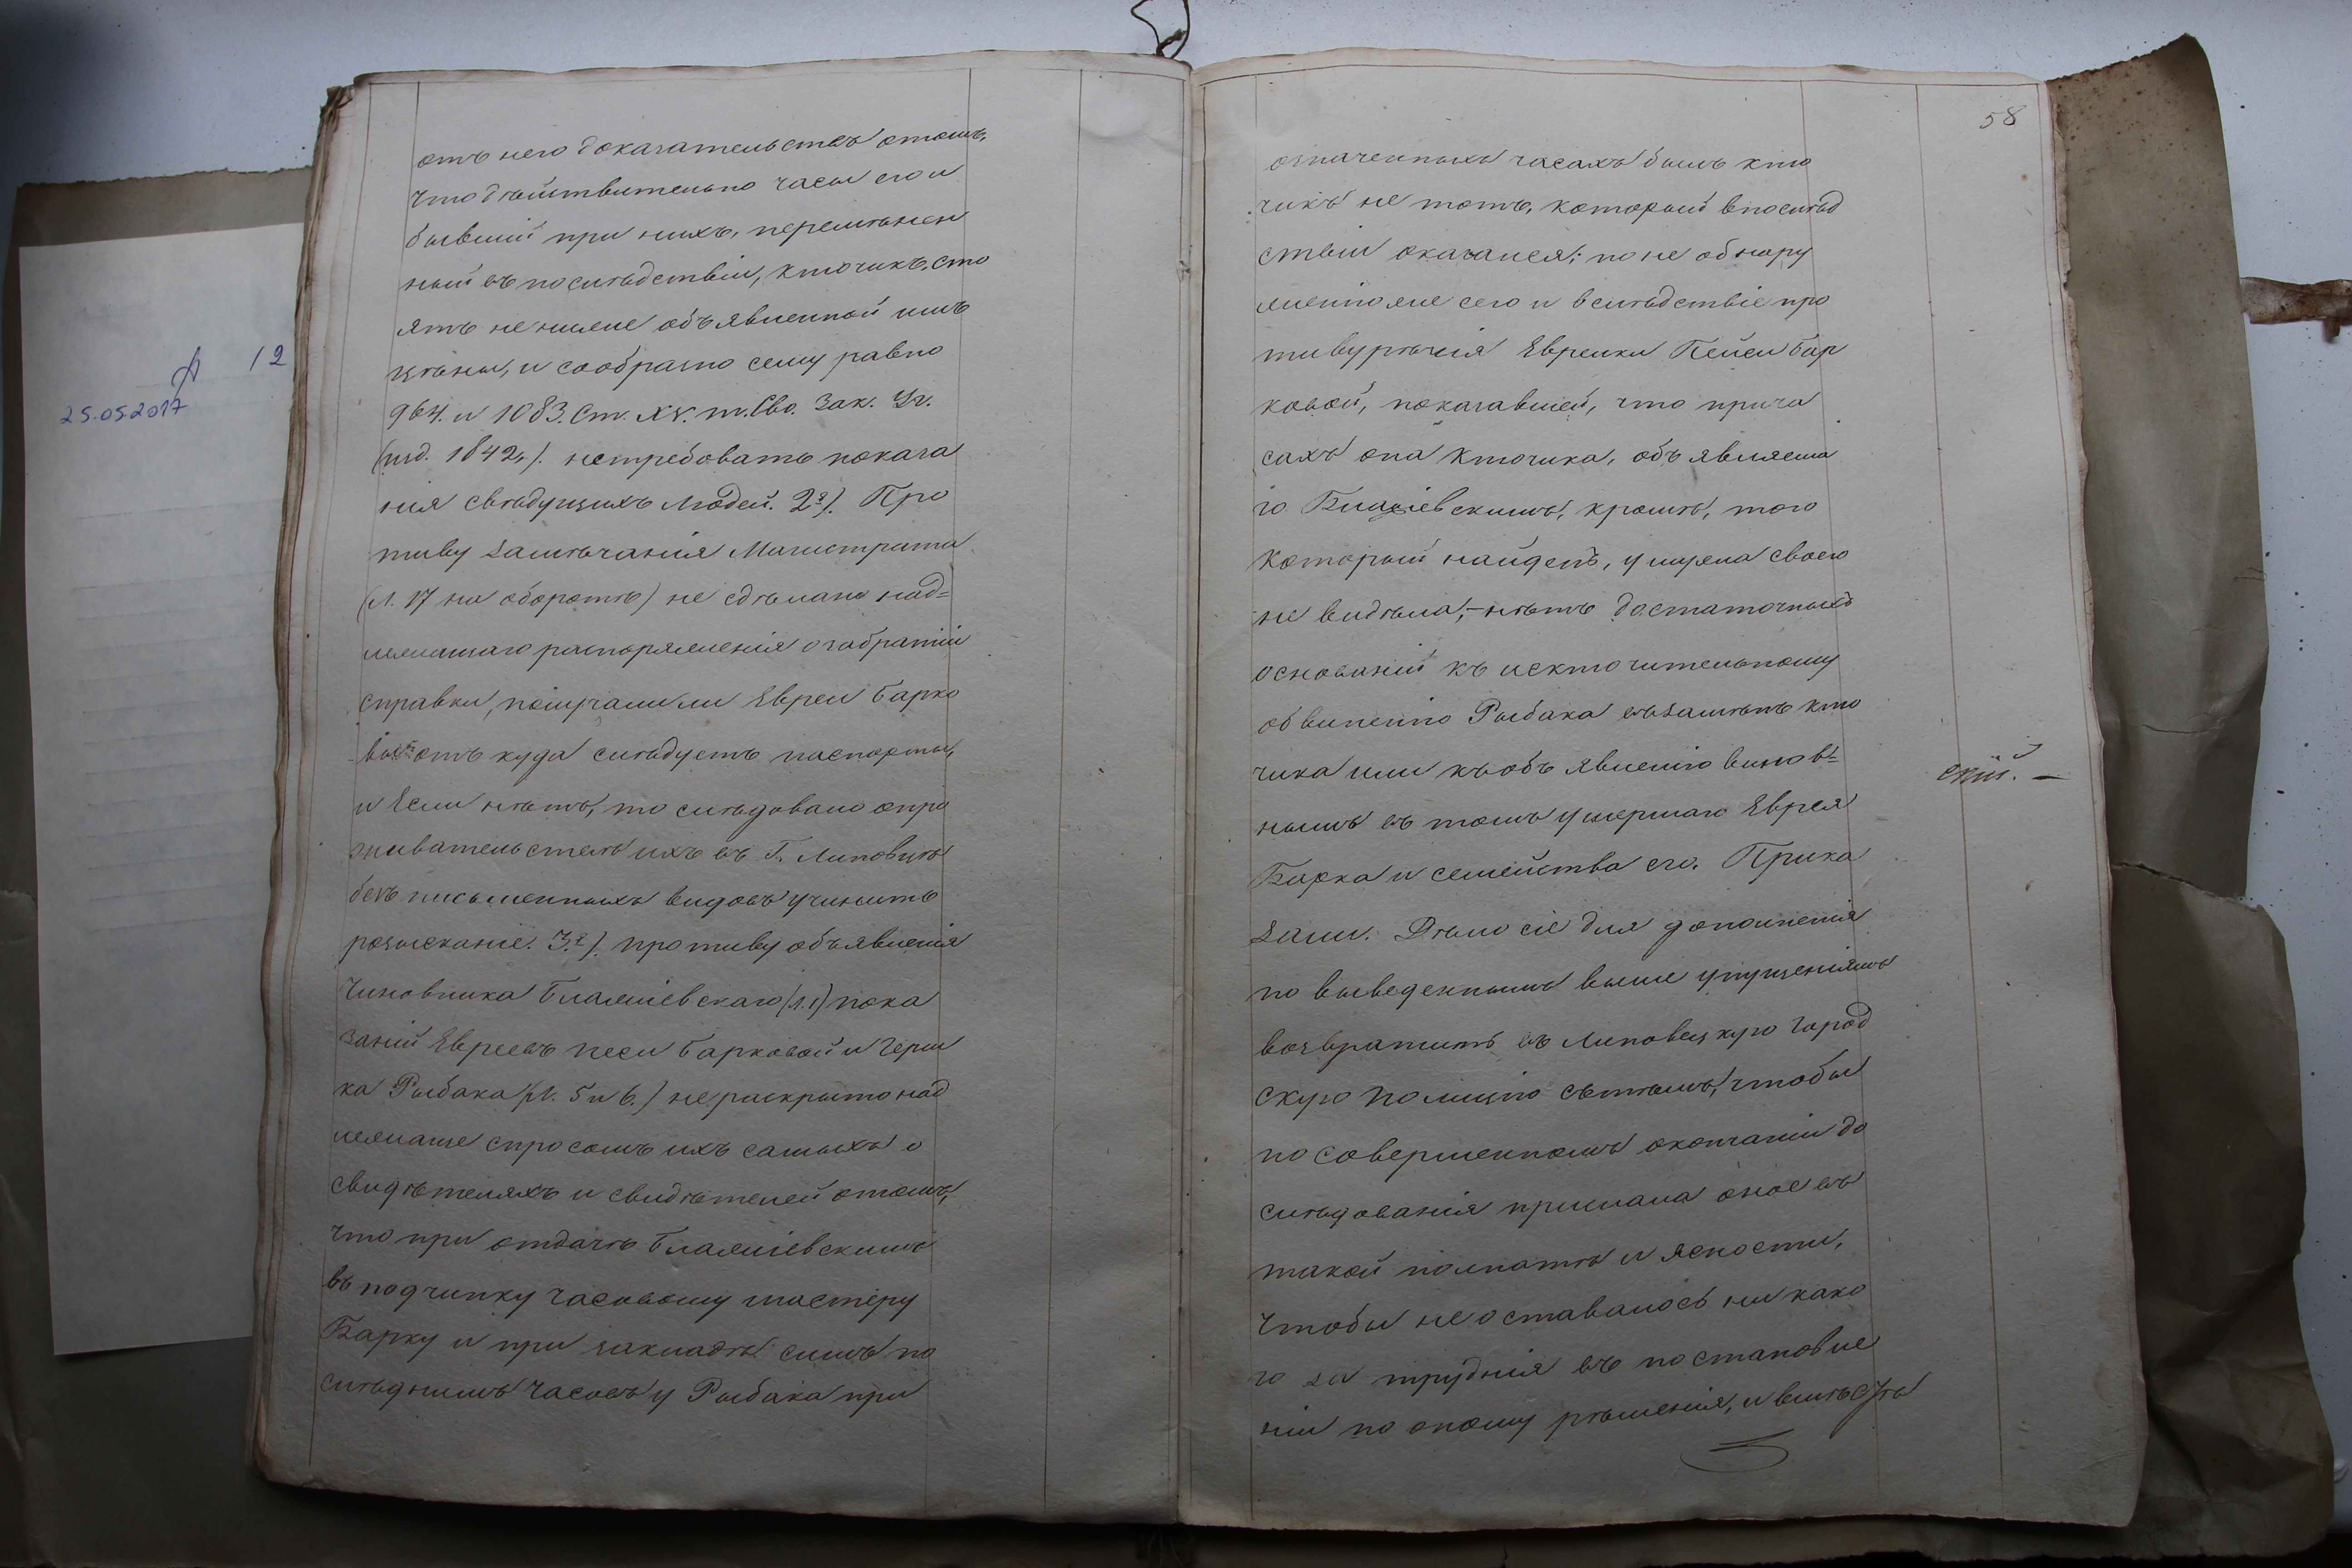 А 12
25.05.2017
отъ него доказательствъ отомъ,
что дѣйствительно часы его и
бывшій при нихъ, перемѣнен
ный въ послѣдствіи, ключикъ, сто
ятъ не ниже объявленной имъ
цѣны, и сообразно сему равно
964. и 1083. Ст. XV. т. Сво. Зак. Уг.
(изд. 1842,). нетребовать показа
нія свѣдущихъ людей. 2е). Про
тиву замѣчанія Магистрата
(л. 17 на оборотѣ) не сдѣлано над=
лежащаго распоряженія о забратіи
справки, получали ли Евреи Барко
вы отъ куда слѣдуетъ паспорты,
и Если нѣтъ, то слѣдовало опро
живательствѣ ихъ въ Г. Липовцѣ
безъ письменныхъ видовъ учинить
розысканіе. 3е). противу объявленія
Чиновника Блажіевскаго (л. 1) пока
заній Евреевъ Песи Барковой и Герш
ка Рыбака (л. 5 и 6.) не раскрыто над
лежаще спросомъ ихъ самыхъ о
свидѣтеляхъ и свидѣтелей отомъ,
что при отдачѣ Блажіевскимъ
въ подчинку часовому мастеру
Барку и при закладѣ симъ по
слѣднимъ часовъ у Рыбака при
58
означенныхъ часахъ былъ клю
чикъ не тотъ, который впослѣд
ствіи оказался; по не обнару
женію же сего и вслѣдствіе про
тивурѣчія Еврейки Пейси Бар
ковой, показавшей, что при ча
сахъ она ключика, объявляема
го Блажіевскимъ, кромѣ, того
который найденъ, у мужа своего
не видѣла;- нѣтъ достаточныхъ
основаній къ исключительному
обвиненію Рыбака въ замѣнѣ клю
чика или къ объявленію винов=
нымъ въ томъ умершаго Еврея
Барка и семейства его. Прика
зали. Дѣло сіе для дополненія
по выведеннымъ выше упущеніямъ
возвратить въ Липовецкую Город
скую Полицію съ тѣмъ, чтобы
по совершенномъ окончаніи до
слѣдованія прислала оное въ
такой полнотѣ и ясности,
чтобы не оставалось ни како
го за трудненія въ постановле
ніи по оному рѣшенія, и вмѣстѣ
скій. —